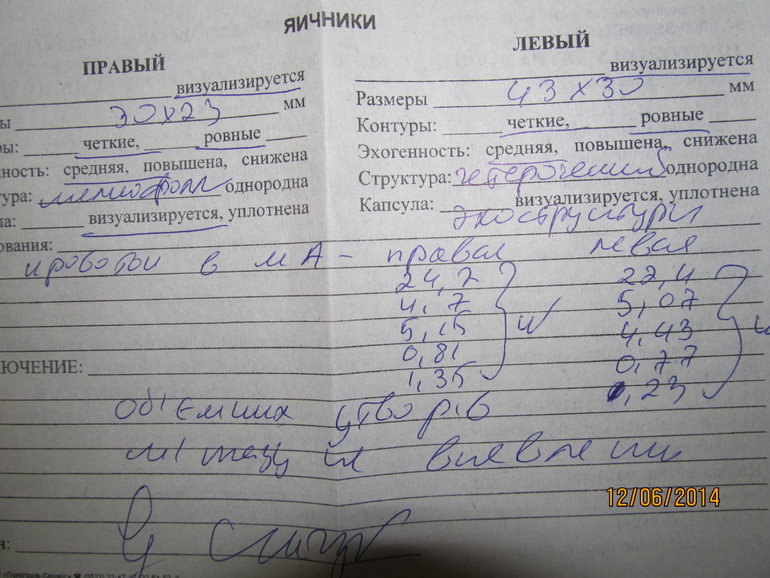 ЯИЧНИКИ
ПРАВЫЙ ЛЕВЫЙ
визуализируется визуализируется
ы 30x23 мм Размеры 43x30 мм
ры: четкие, ровные Контуры: четкие, ровные
ность: средняя, повышена, снижена Эхогенность: средняя, повышена, снижена
тура: однородна Структура: однородна
ла: визуализируется, уплотнена Капсула: визуализируется, уплотнена
ования: экоструктури
в МА - правая левая
24,7 22,4
4,7 5,07
5,15 4,43
0,81 0,77
1,35 ,23
ЛЮЧЕНИЕ:
об'ємних утворів
мі тазу не виявлени
12/06/2014